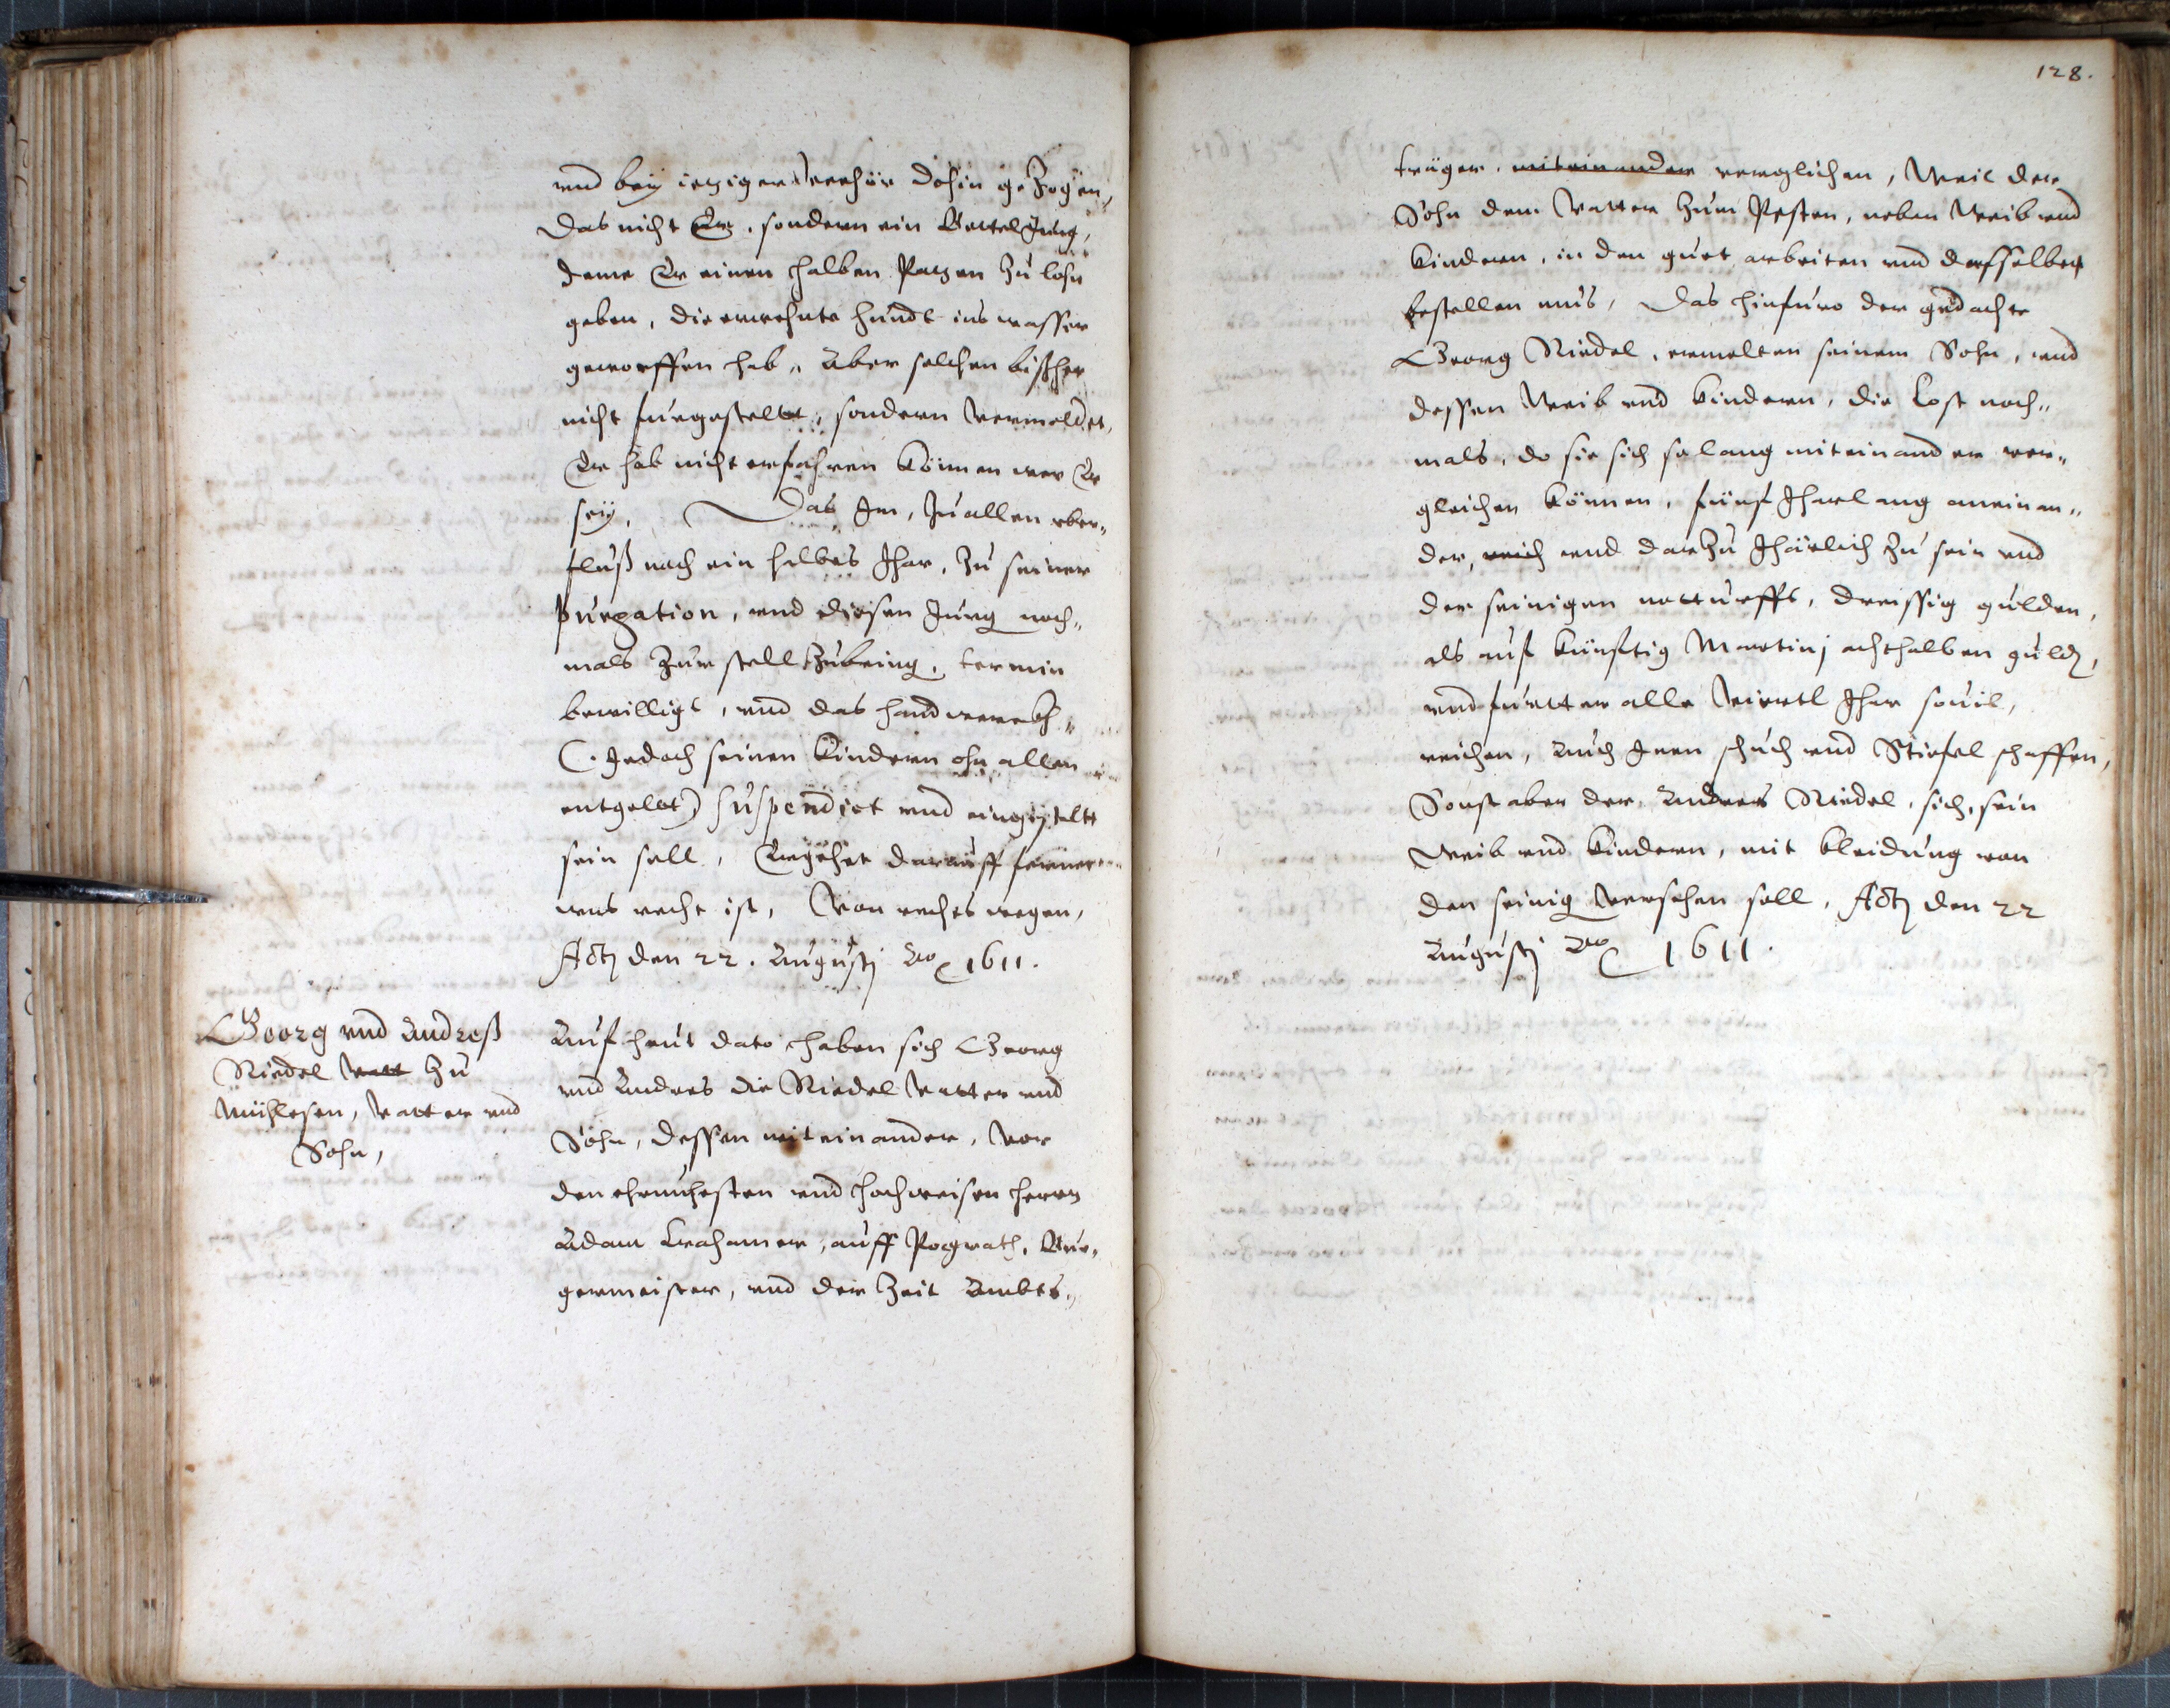 vnd bey ietziger Verhör dohin gezogen,
Das nicht Er, sondern ein Bettel Jung,
deme Er einen halben Patzen zu lohn
geben, die ermehnte hundt ins wasser
geworffen hab, Aber solchen bißher
nicht furgestelt, sondern Vermeldet,
Er hab nicht erfahren können wer Er
sey, Das Im, zu allen vber„
fluß nach ein halbes Jhar, zu seiner
purgation, vnd diesen Jung noch„
mals zur stell zubring, termin
bewilligt, vnd das handwerckh„
(Jedoch seinen Kindern ohn allen
entgelt) suspendirt vnd eingestelt
sein soll, Ergehet darauff ferner
was recht ist, Von rechts wegen,
Act den 22. Augusti Ao 1611.
Georg vnd Andreß
Riedel Vatt zu
Mühlesen, Vatter vnd
Sohn,
Auf heut dato haben sich Georg
vnd Andres die Riedel Vatter vnd
Sohn, dessen miteinander, Vor
den ehrnuhesten vnd hochweisen herrn
Adam Crahamer, auff Pograth, Bur„
germeister, vnd der Zeit Ambts„
128.
trager, miteinander verglichen, Weil der
Sohn dem Vatter zum Pesten, neben Weib vnd
Kindern, in den guet arbeiten vnd dasselbig
bestellen mus, Das hinfuro der gedachte
Georg Riedel, ermelten seinem Sohn, vnd
dessen Weib vnd Kindern, die Cost noch„
mals, do sie sich solang miteinander ver„
gleichen können, fünf Jharlang aneinan„
der, reich vnd darzu Jhärlich zu sein vnd
der seinigen notturfft, dreissig gulden,
als auf künftig Martinj achthalben guld,
vnd furtter alle Viertl Jhar souil,
reichen, Auch Jnen schuch vnd Stiefel schaffen,
Sonst aber der Andres Riedel, sich, sein
Weib vnd Kindern, mit kleidung von
den seinig Versehen soll, Act den 22
Augusti Ao 1611.